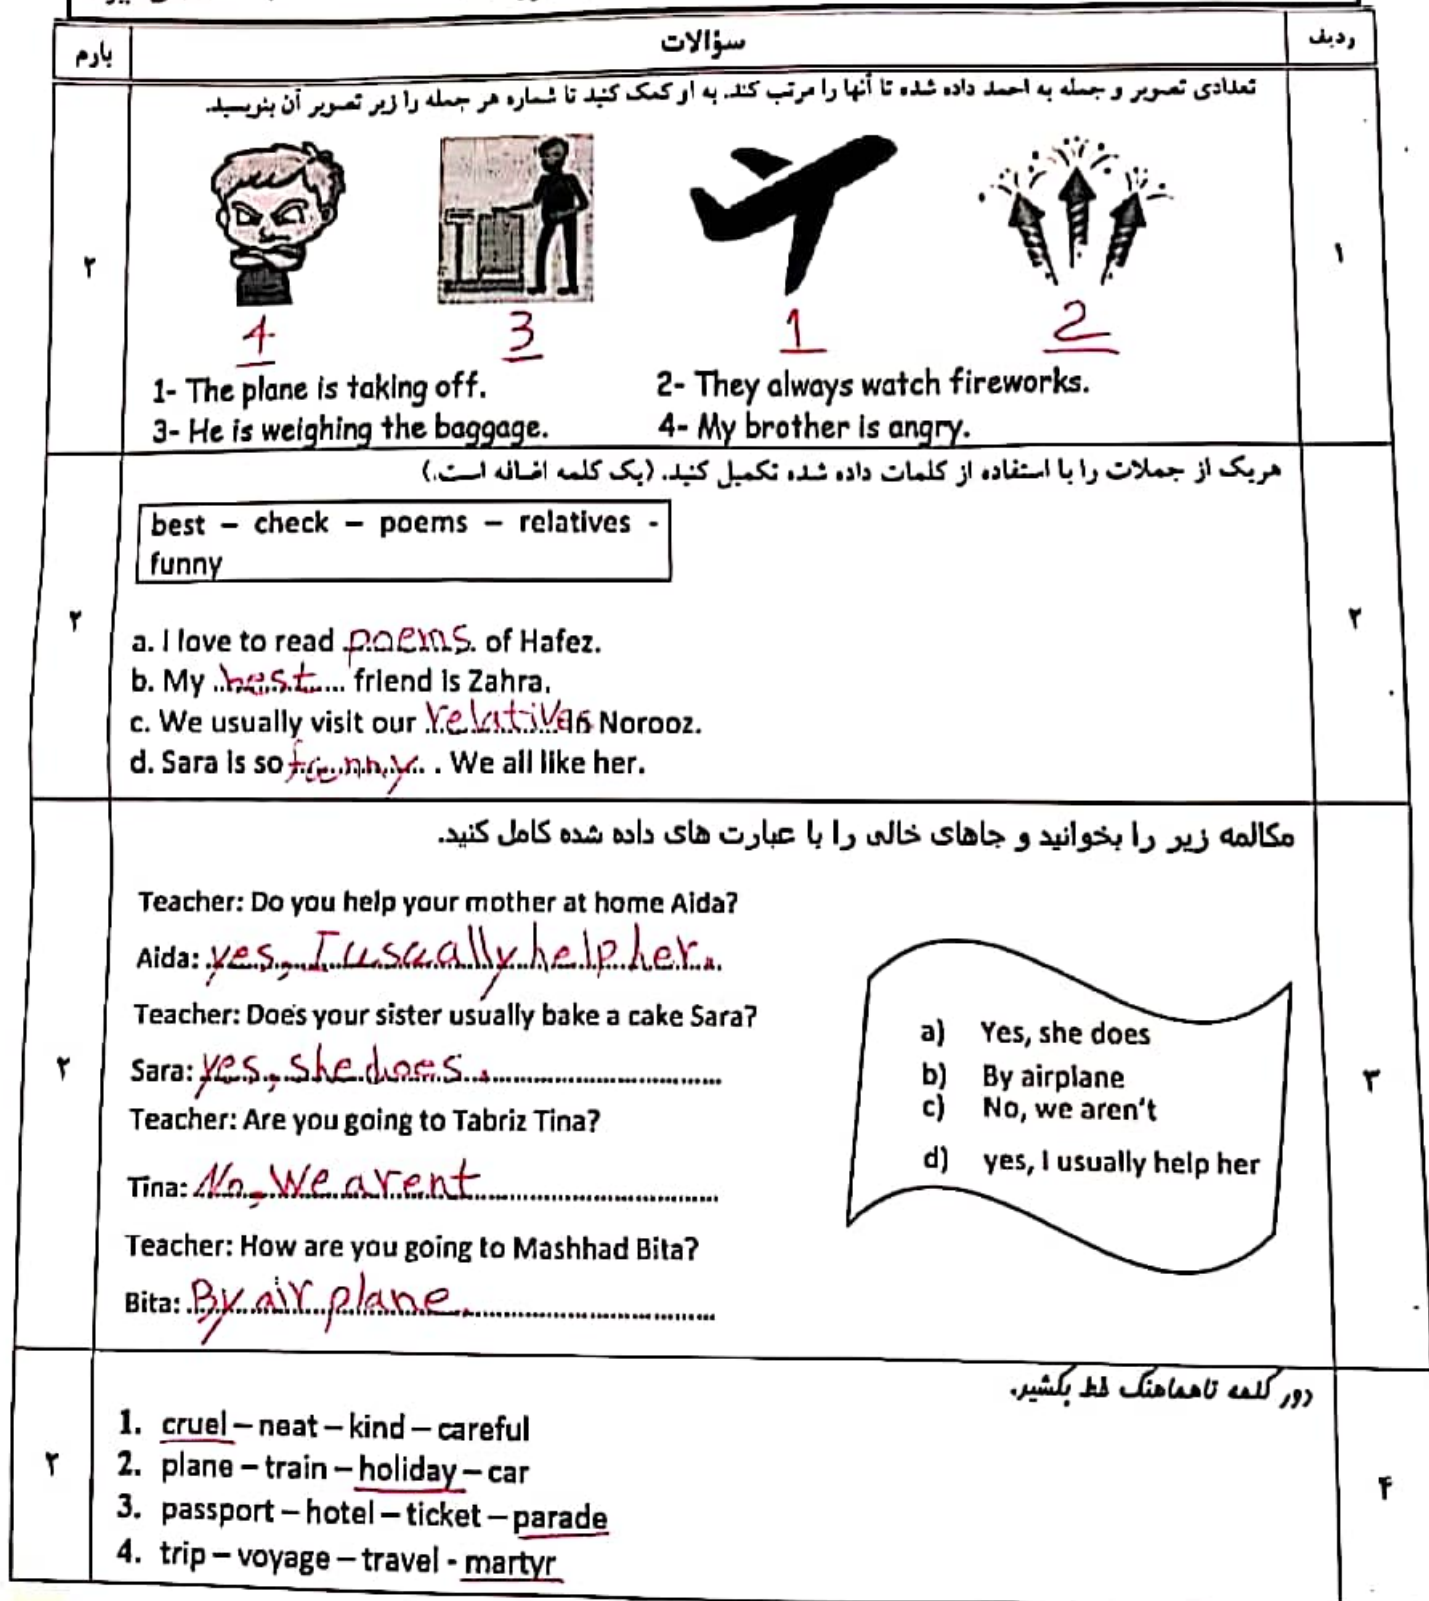 ردیف سؤالات بارم
۱ تعدادی تصویر و جمله به احمد داده شده تا آنها را مرتب کند. به او کمک کنید تا شماره هر جمله را زیر تصویر آن بنویسید. ۲
4 3 1 2
1- The plane is taking off. 2- They always watch fireworks.
3- He is weighing the baggage. 4- My brother is angry.
۲ هریک از جملات را با استفاده از کلمات داده شده تکمیل کنید. (یک کلمه اضافه است.) ۲
best – check – poems – relatives -
funny
a. I love to read poems. of Hafez.
b. My best friend is Zahra.
c. We usually visit our relatives in Norooz.
d. Sara is so funny. We all like her.
۳ مکالمه زیر را بخوانید و جاهای خالی را با عبارت های داده شده کامل کنید. ۲
Teacher: Do you help your mother at home Aida?
Aida: yes, I usually help her.
Teacher: Does your sister usually bake a cake Sara?
Sara: yes, she does.
Teacher: Are you going to Tabriz Tina?
Tina: No, we arent
Teacher: How are you going to Mashhad Bita?
Bita: By air plane.
a) Yes, she does
b) By airplane
c) No, we aren't
d) yes, I usually help her
۴ دور کلمه ناهماهنگ خط بکشید. ۲
1. cruel – neat – kind – careful
2. plane – train – holiday – car
3. passport – hotel – ticket – parade
4. trip – voyage – travel - martyr